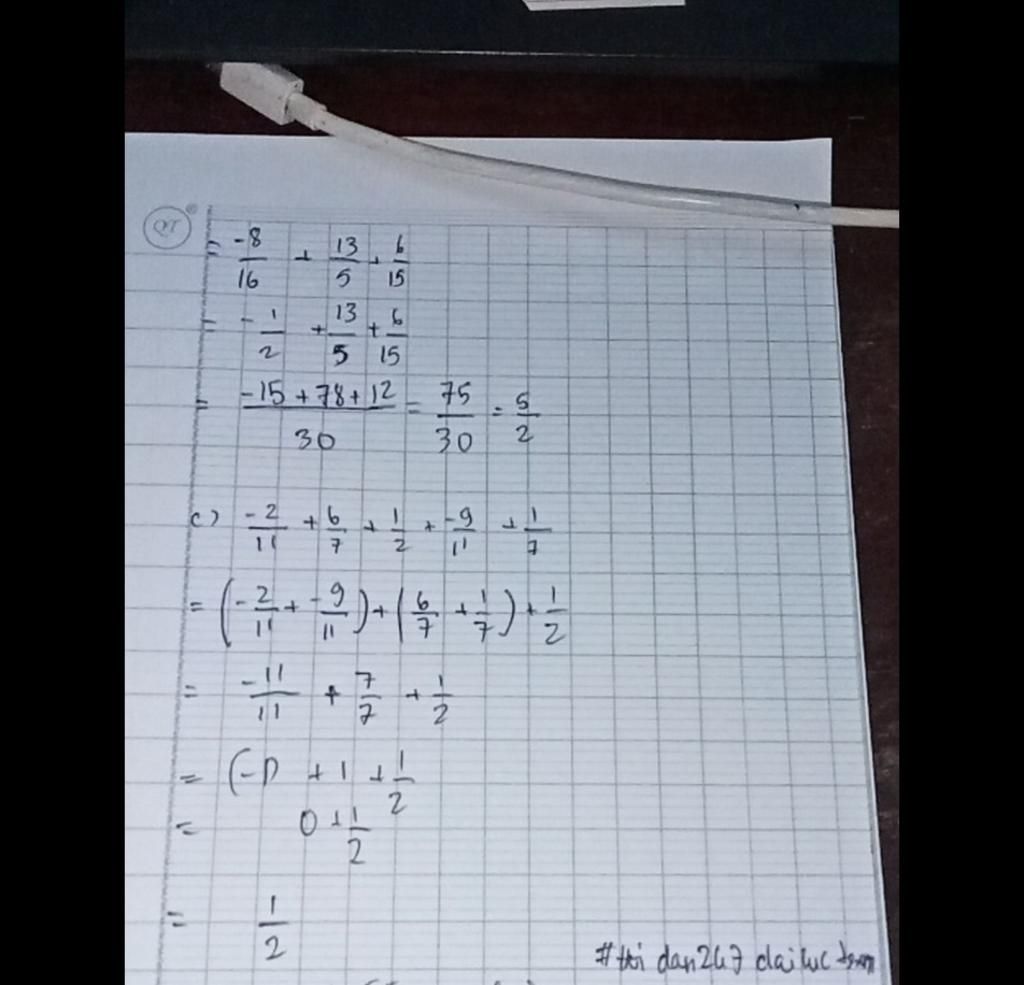 = -8/16 + 13/5 + 6/15
= -1/2 + 13/5 + 6/15
= (-15 + 78 + 12)/30 = 75/30 = 5/2
c) -2/11 + 6/7 + 1/2 + -9/11 + 1/7
= (-2/11 + -9/11) + (6/7 + 1/7) + 1/2
= -11/11 + 7/7 + 1/2
= (-1) + 1 + 1/2
= 0 + 1/2
= 1/2
dan247